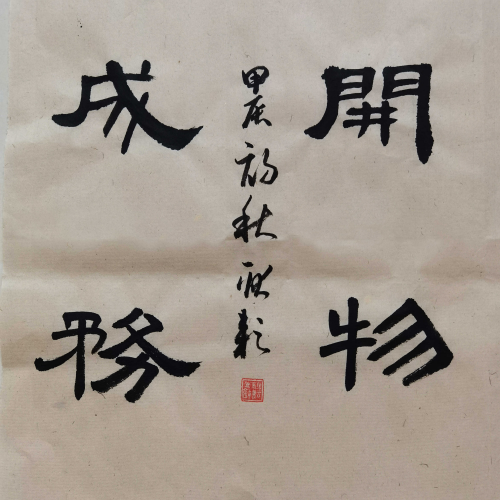 開物
成務
甲辰初秋